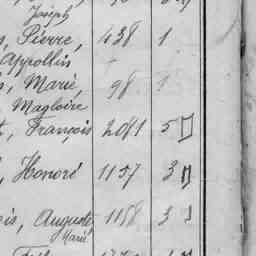 Joseph
, Pierre, 438 1
Appollin
, Marie, 98 1
Magloire
, François 2041 5
, Honoré 1157 3
is, Auguste 1158 3
Marie